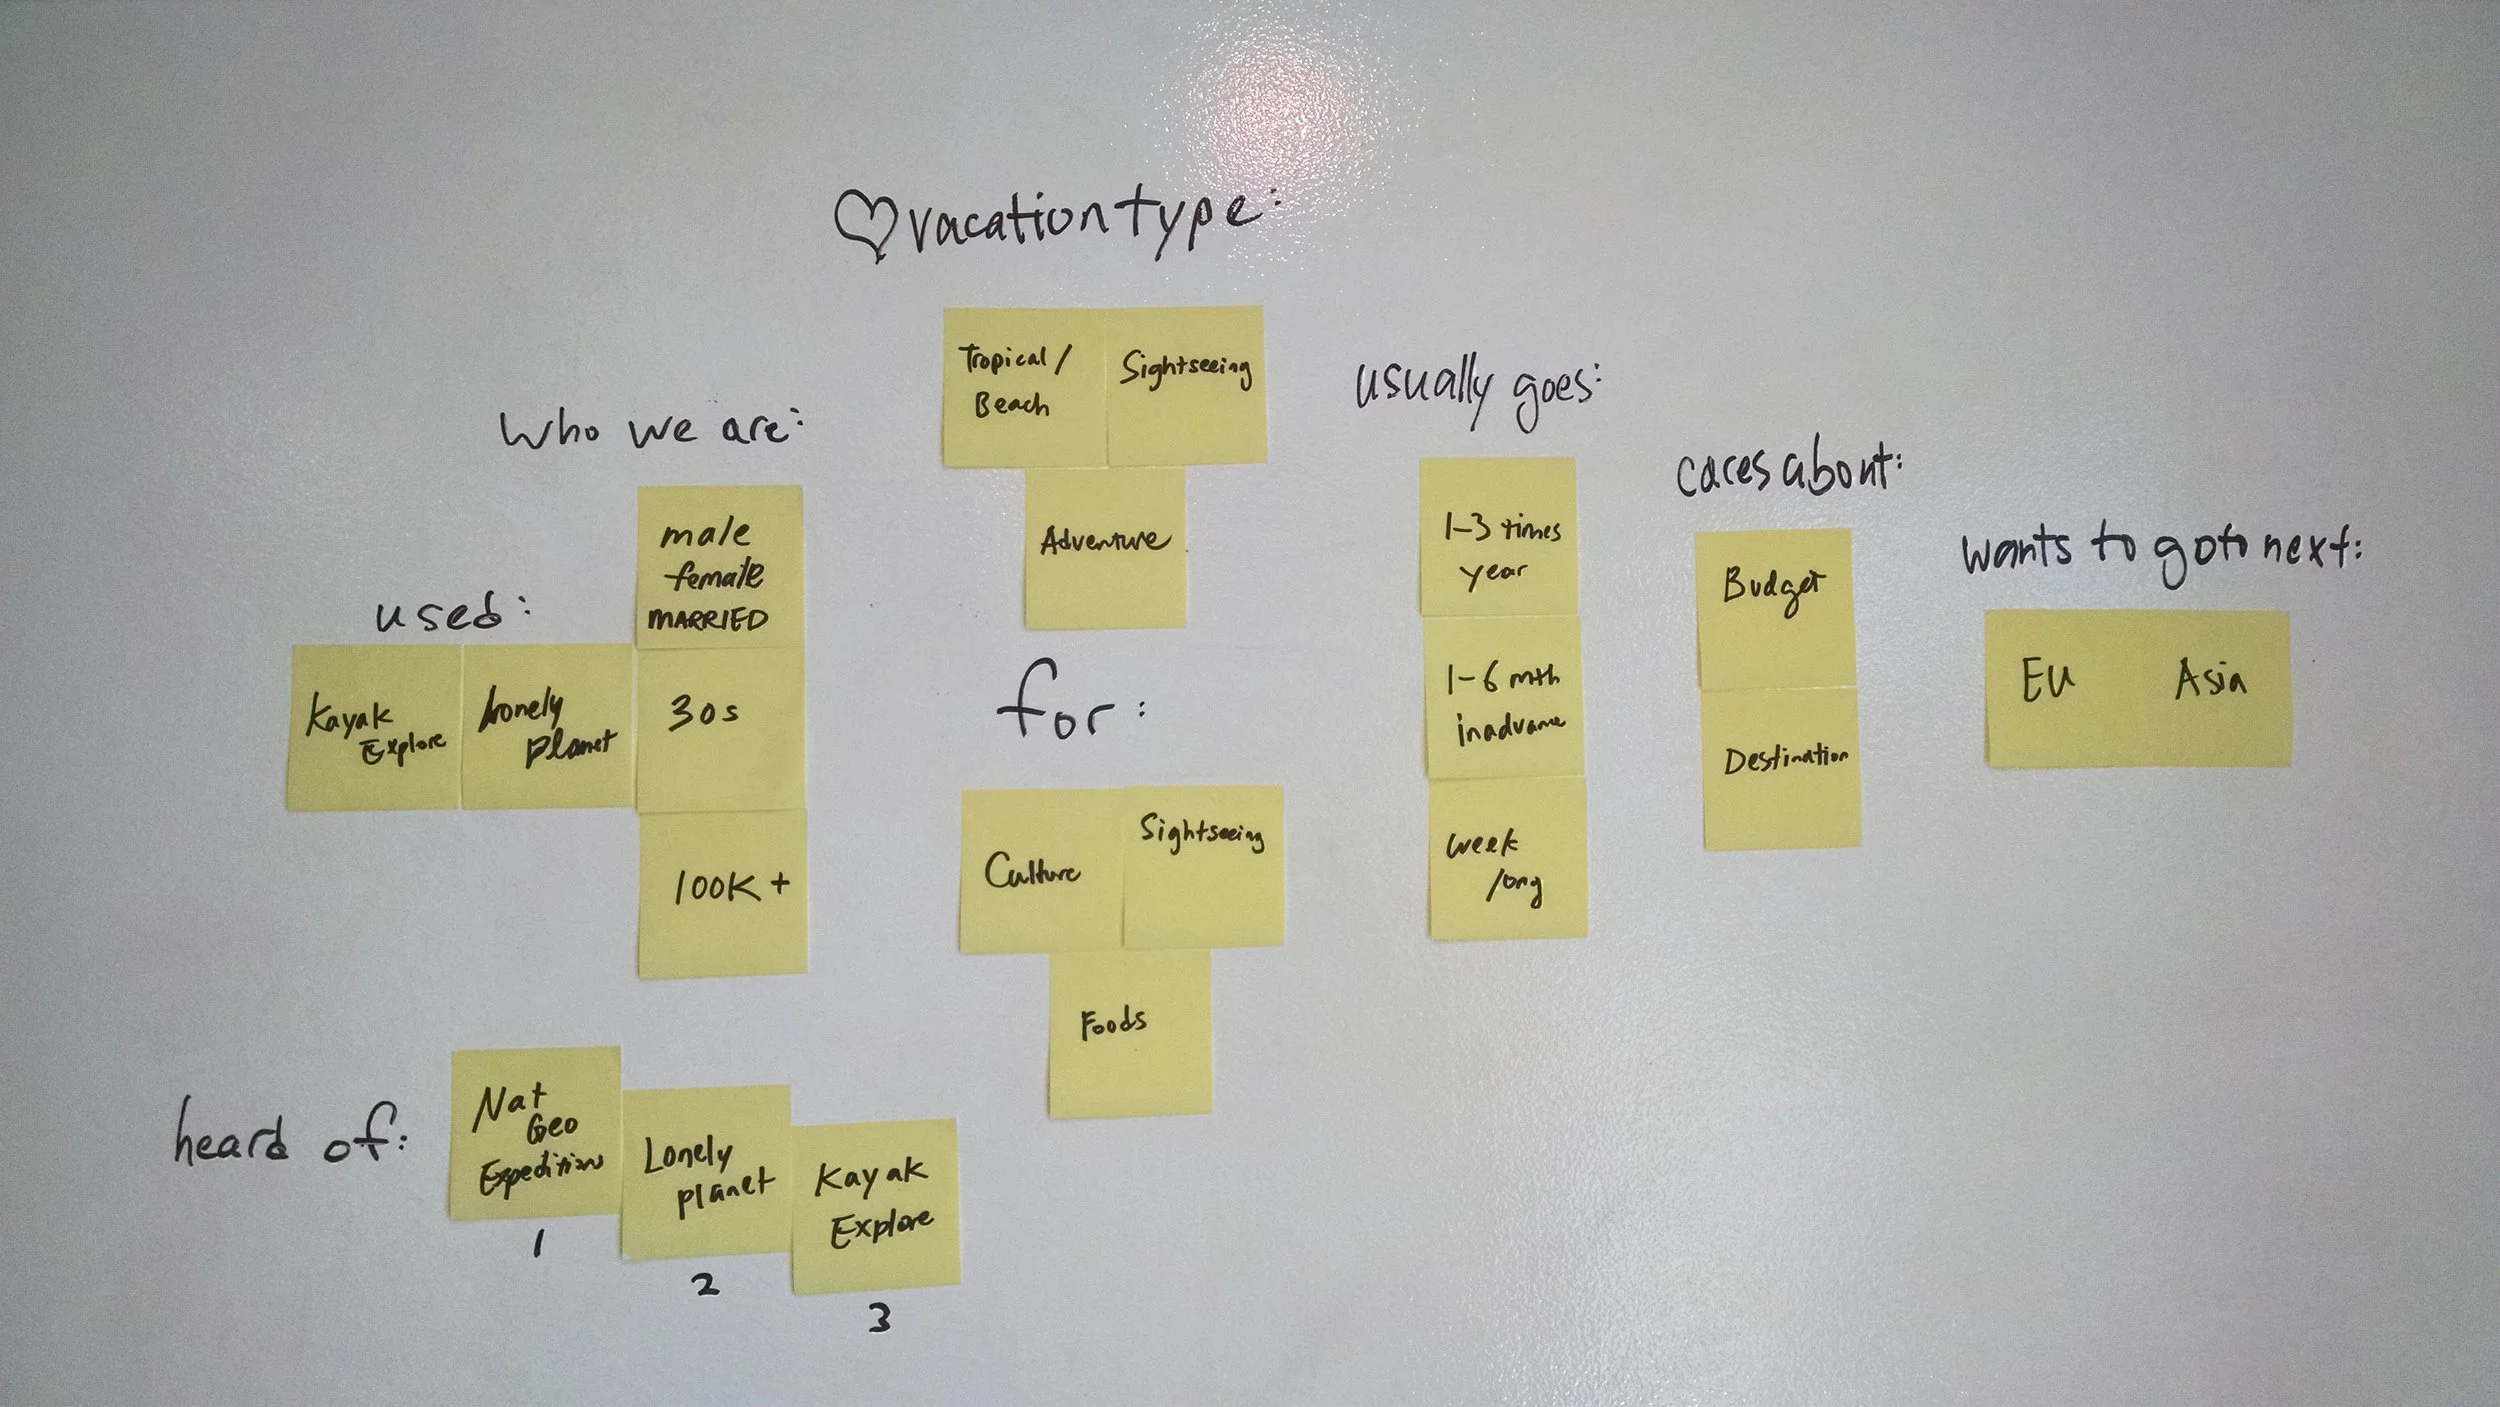 ♡ vacation type:
Tropical /
Beach
Sightseeing
Adventure
who we are:
male
female
MARRIED
30s
100K +
used:
Kayak
Explore
Lonely
Planet
for:
Culture
Sightseeing
Foods
usually goes:
1-3 times
year
1-6 mth
in advance
week
long
cares about:
Budget
Destination
wants to go to next:
EU Asia
heard of:
Nat
Geo
Expeditions
1
Lonely
planet
2
Kayak
Explore
3